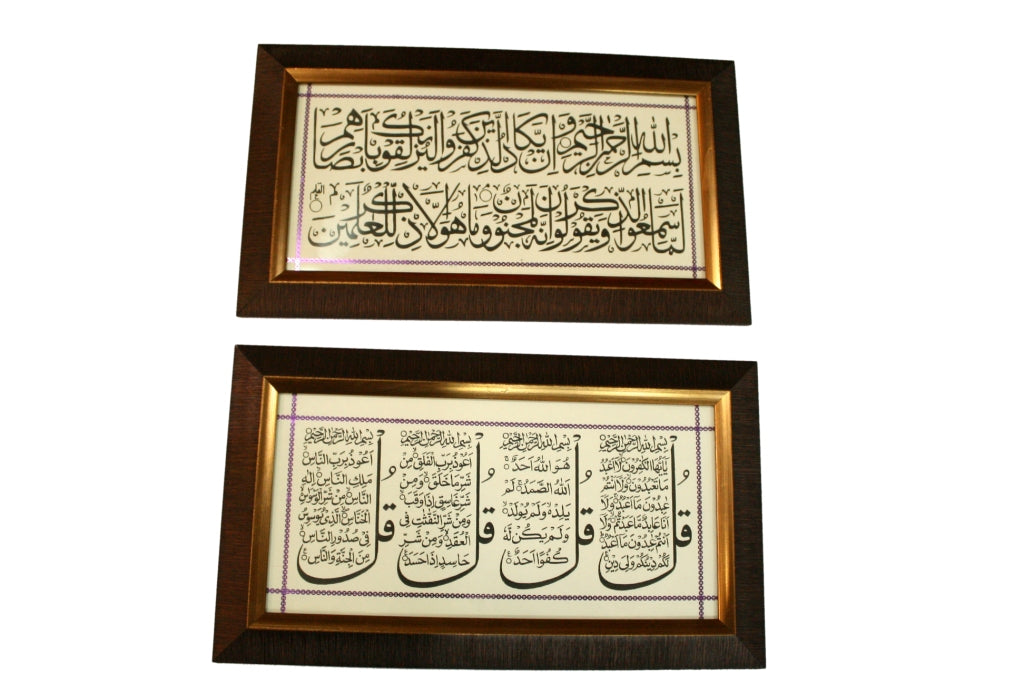 بسم الله الرحمن الرحيم وان يكاد الذين كفروا ليزلقونك بابصارهم
لما سمعوا الذكر ويقولون انه لمجنون وما هو الا ذكر للعلمين
قل
بسم الله الرحمن الرحيم
يايها الكفرون لا اعبد
ما تعبدون ولا انتم
عبدون ما اعبد ولا
انا عابد ما عبدتم ولا
انتم عبدون ما اعبد
لكم دينكم ولي دين
قل
بسم الله الرحمن الرحيم
هو الله احد
الله الصمد لم
يلد ولم يولد
ولم يكن له
كفوا احد
قل
بسم الله الرحمن الرحيم
اعوذ برب الفلق من
شر ما خلق ومن
شر غاسق اذا وقب
ومن شر النفثت في
العقد ومن شر
حاسد اذا حسد
قل
بسم الله الرحمن الرحيم
اعوذ برب الناس
ملك الناس اله
الناس من شر الوسواس
الخناس الذي يوسوس
في صدور الناس
من الجنة والناس